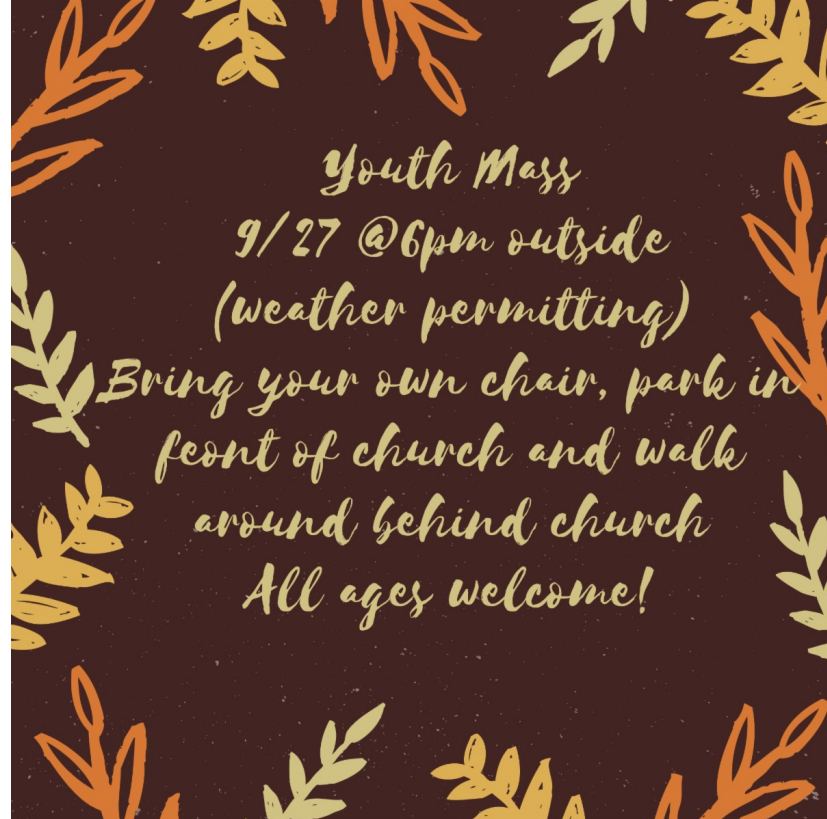 Youth Mass
9/27 @6pm outside
(weather permitting)
Bring your own chair, park in
feont of church and walk
around behind church
All ages welcome!